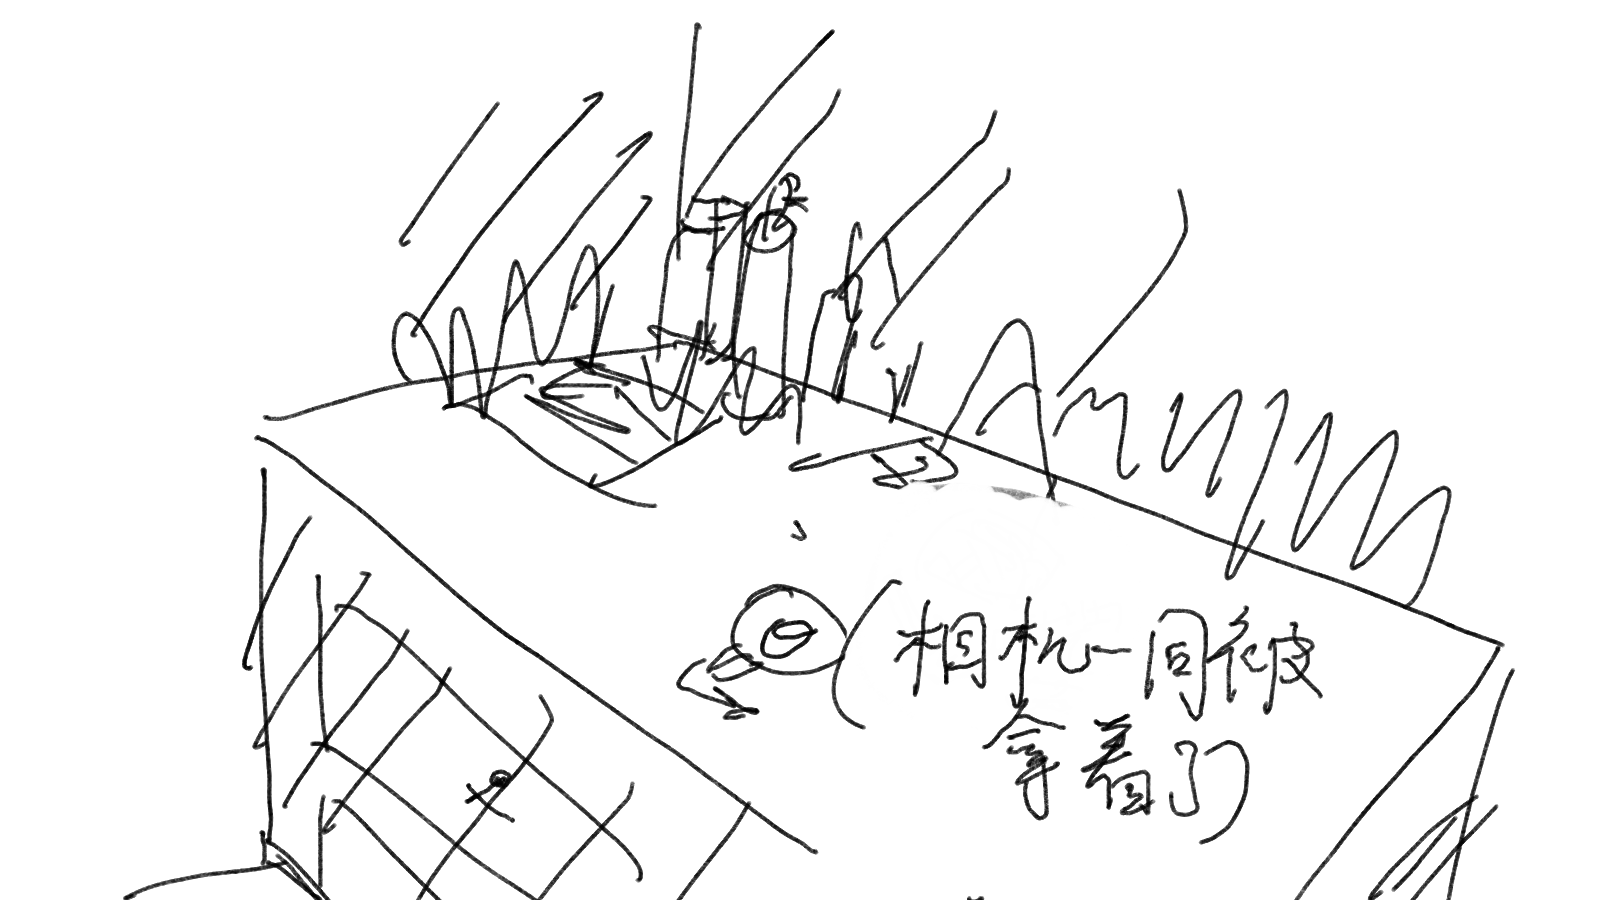 (相机一同被
拿着了)